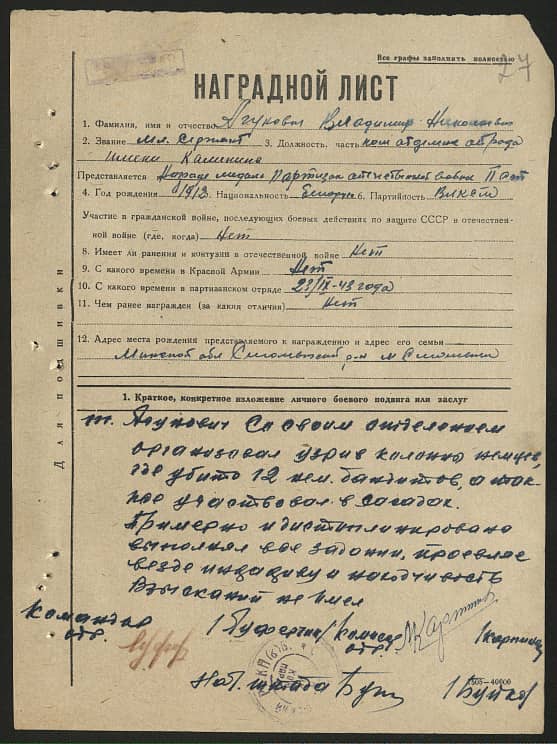 Все графы заполнить полностью
27
НАГРАДНОЙ ЛИСТ
1. Фамилия, имя и отчество Ягукович Владимир Николаевич
2. Звание Мл. Сержант 3. Должность, часть ком отделен отряда
имени Калинина
Представляется Награде медаль Партизан отечественной войны II ст
4. Год рождения 1912 5. Национальность 6. Партийность ВЛКСМ
Участие в гражданской войне, последующих боевых действиях по защите СССР и отечествен-
ной войне (где, когда) Нет
8. Имеет ли ранения и контузии в отечественной войне Нет
9. С какого времени в Красной Армии Нет
10. С какого времени в партизанском отряде 23/IX-43 года
11. Чем ранее награжден (за какия отличия) Нет
12. Адрес места рождения представляемого к награждению и адрес его семьи
Минской обл р-н м
Для подшивки
1. Краткое, конкретное изложение личного боевого подвига или заслуг
т. Ягукович Со своим отделением
организовал узрив колонны немцев,
где убито 12 нем. бандитов, а так-
же участвовал в засадах.
Примерно и дистсплинировано
выполнял все задания, проевляе
везде и находчивость
Взысканий не имел
Командир
отр.
Комисар
отр.
Нач. штаба